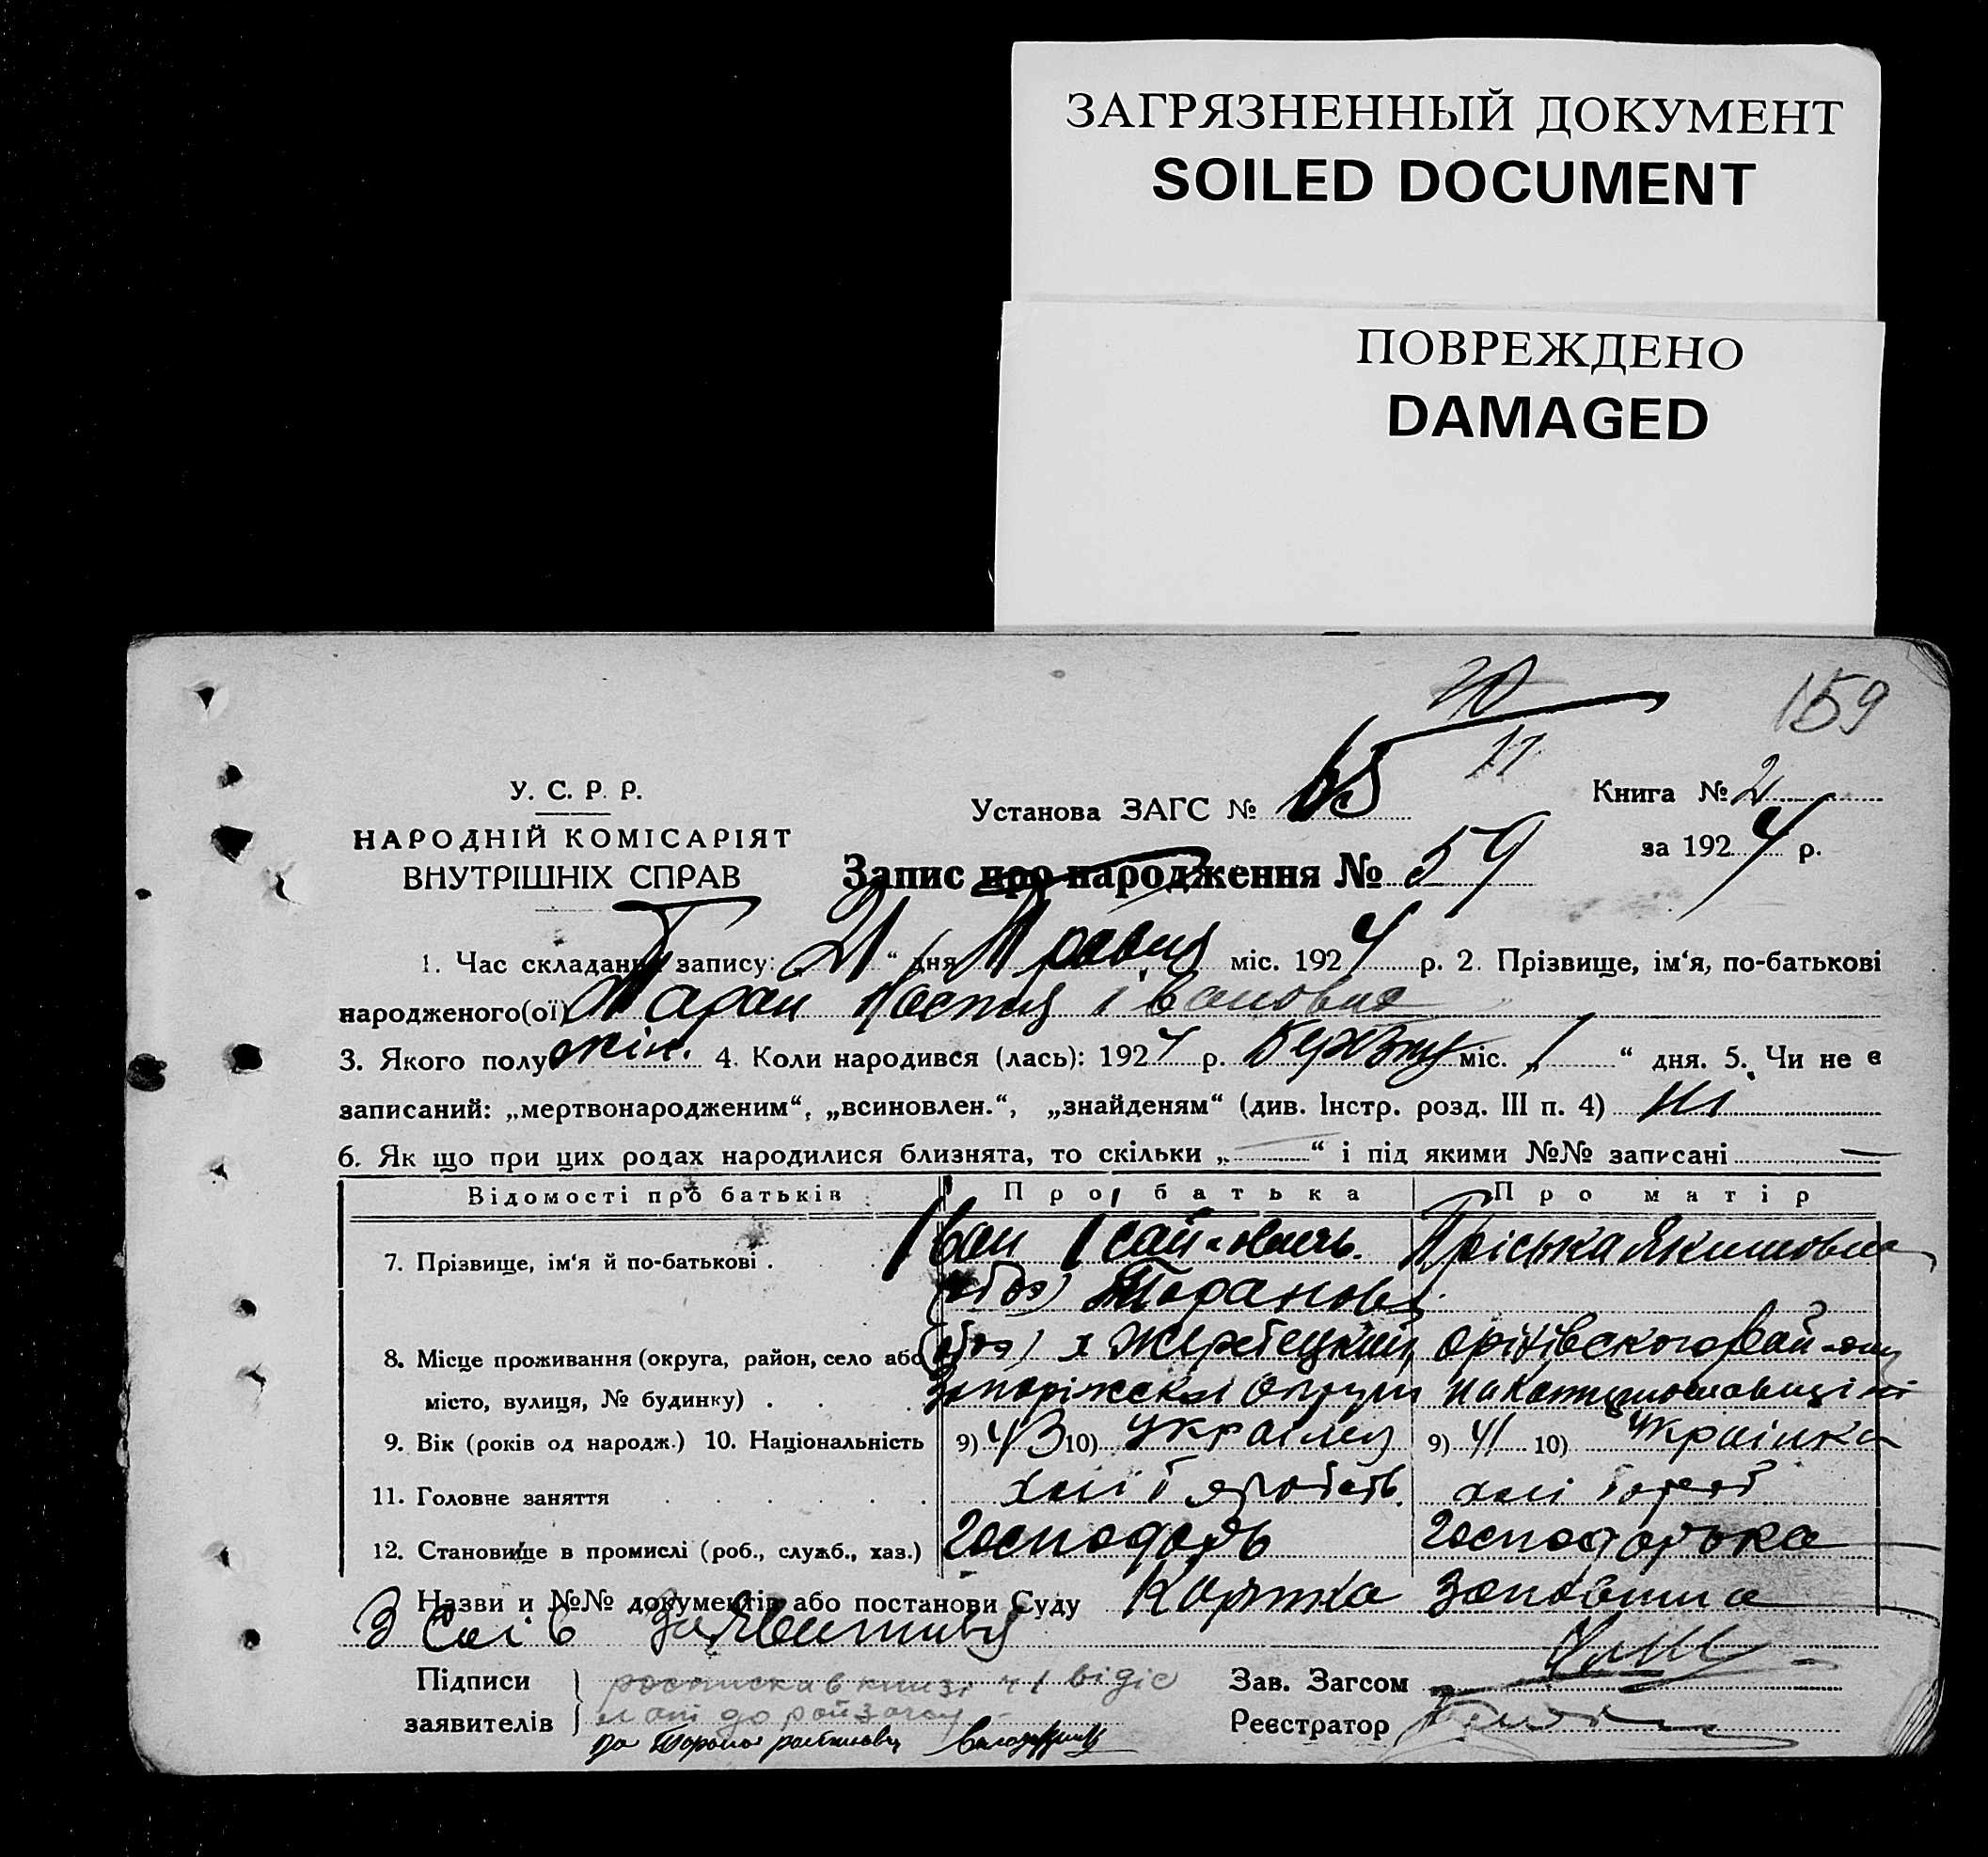 ЗАГРЯЗНЕННЫЙ ДОКУМЕНТ
SOILED DOCUMENT
ПОВРЕЖДЕНО
DAMAGED
159
У. С. Р. Р.
НАРОДНІЙ КОМІСАРІЯТ
ВНУТРІШНІХ СПРАВ
Установа ЗАГС №
Книга № 2
за 1924 р.
Запис про народження № 59
1. Час складання запису: „21“ дня Травня міс. 1924 р. 2. Прізвище, ім‘я, по-батькові
народженого(ої) Таран Настя Івановна
3. Якого полу жін. 4. Коли народився (лась): 1924 р. Березня міс. „1“ дня. 5. Чи не є
записаний: „мертвонародженим“, „всиновлен.“, „знайденям“ (див. Інстр. розд. III п. 4) Ні
6. Як що при цих родах народилися близнята, то скільки „—“ і під якими №№ записані —
Відомості про батьків Про батька Про матір
7. Прізвище, ім‘я й по-батькові . Іван Ісай Пріська Якимовна
(обоє) Таранови
8. Місце проживання (округа, район, село або (обоє) х Жеребецкий, Оріхівского рай-ону
місто, вулиця, № будинку) . Запоріжскої Округи на Катеринославщині
9. Вік (років од народж.) 10. Національність 9) 43 10) Україне 9) 41 10) Українка
11. Головне заняття хліборобств.
12. Становище в промислі (роб., служб., хаз.) господарь господарька
Назви и №№ документів або постанови Суду Картка заповнина
З слів заявитиля
Підписи
росписка в книзі ч 1 відіс
Зав. Загсом
заявителів
лані до райзагсу
Реєстратор